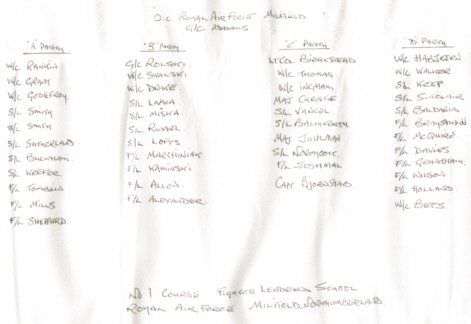 O.C ROYAL AIR FORCE MILFIELD
G/C ADDAMS
"A" PARTY
W/C RANKIN
W/C GRAY
W/C GODEFROY
S/L SMITH
S/L SMITH
S/L SUTHERLAND
S/L BUCHANAN
S/L KEEFER
F/L TOMBLIN
F/L MILLS
F/L SHEPPARD
"B" PARTY
G/C ROLSKI
W/C SKALSKI
W/C DRAKE
S/L LAPKA
S/L MISKA
S/L RUSSEL
S/L LOFTS
F/L MARCINIAK
F/L KAMINSKI
F/L ALLEN
F/L ALEXANDER
"C" PARTY
LT COL
W/C THOMAS
W/C INGHAM
MAJ CHRISTIE
S/L
S/L
MAJ
S/L NORTHCOTT
F/L
CAPT BJORNSTAD
"D" PARTY
W/C
W/C WALKER
S/L KEEP
S/L SINCLAIR
S/L BALDWIN
F/L
F/L
F/L DAVIES
F/L GRANTHAM
F/L WILSON
F/L HOLLAND
W/C
No 1 COURSE FIGHTER LEADERS SCHOOL
ROYAL AIR FORCE MILFIELD, NORTHUMBERLAND.